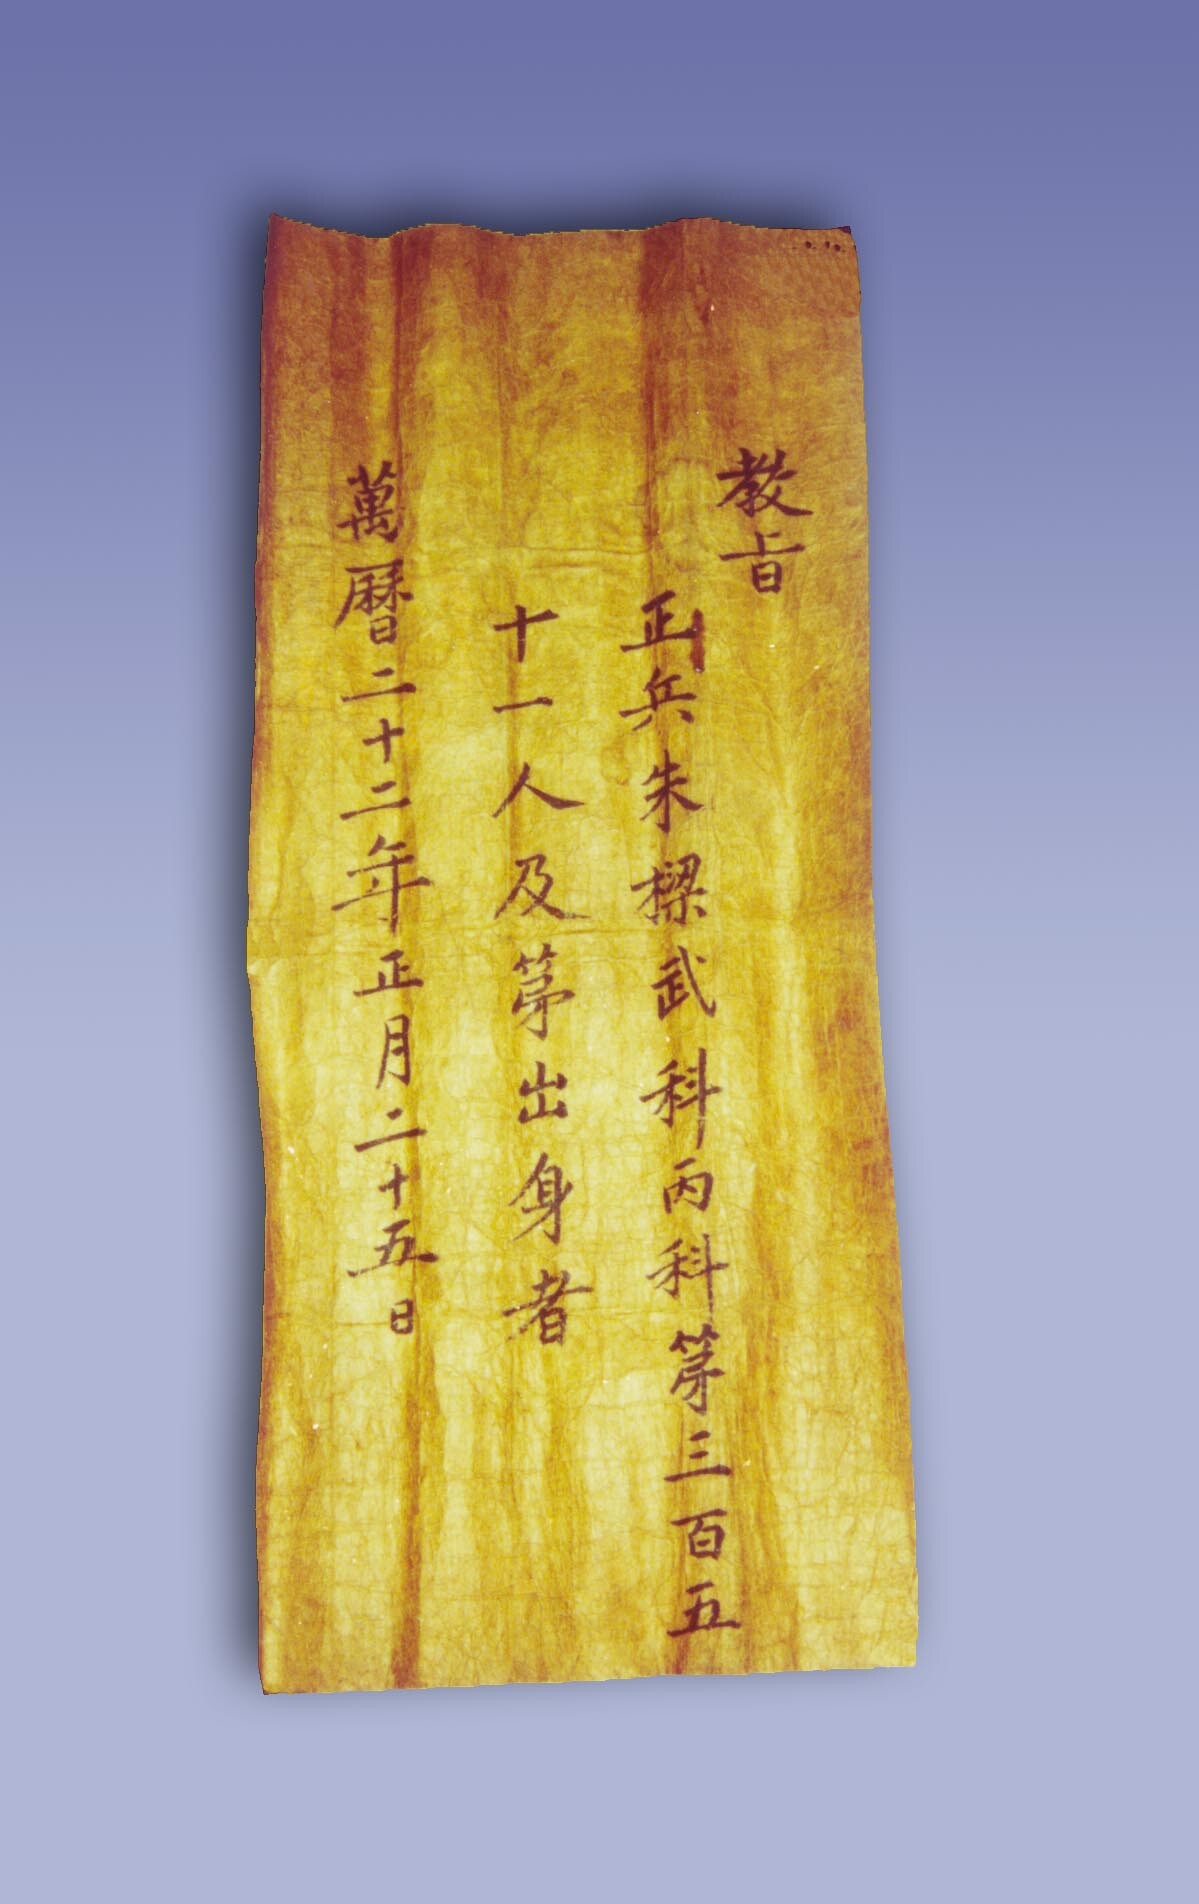 教旨
正兵朱樑武科丙科第三百五
十一人及第出身者
萬曆二十二年正月二十五日